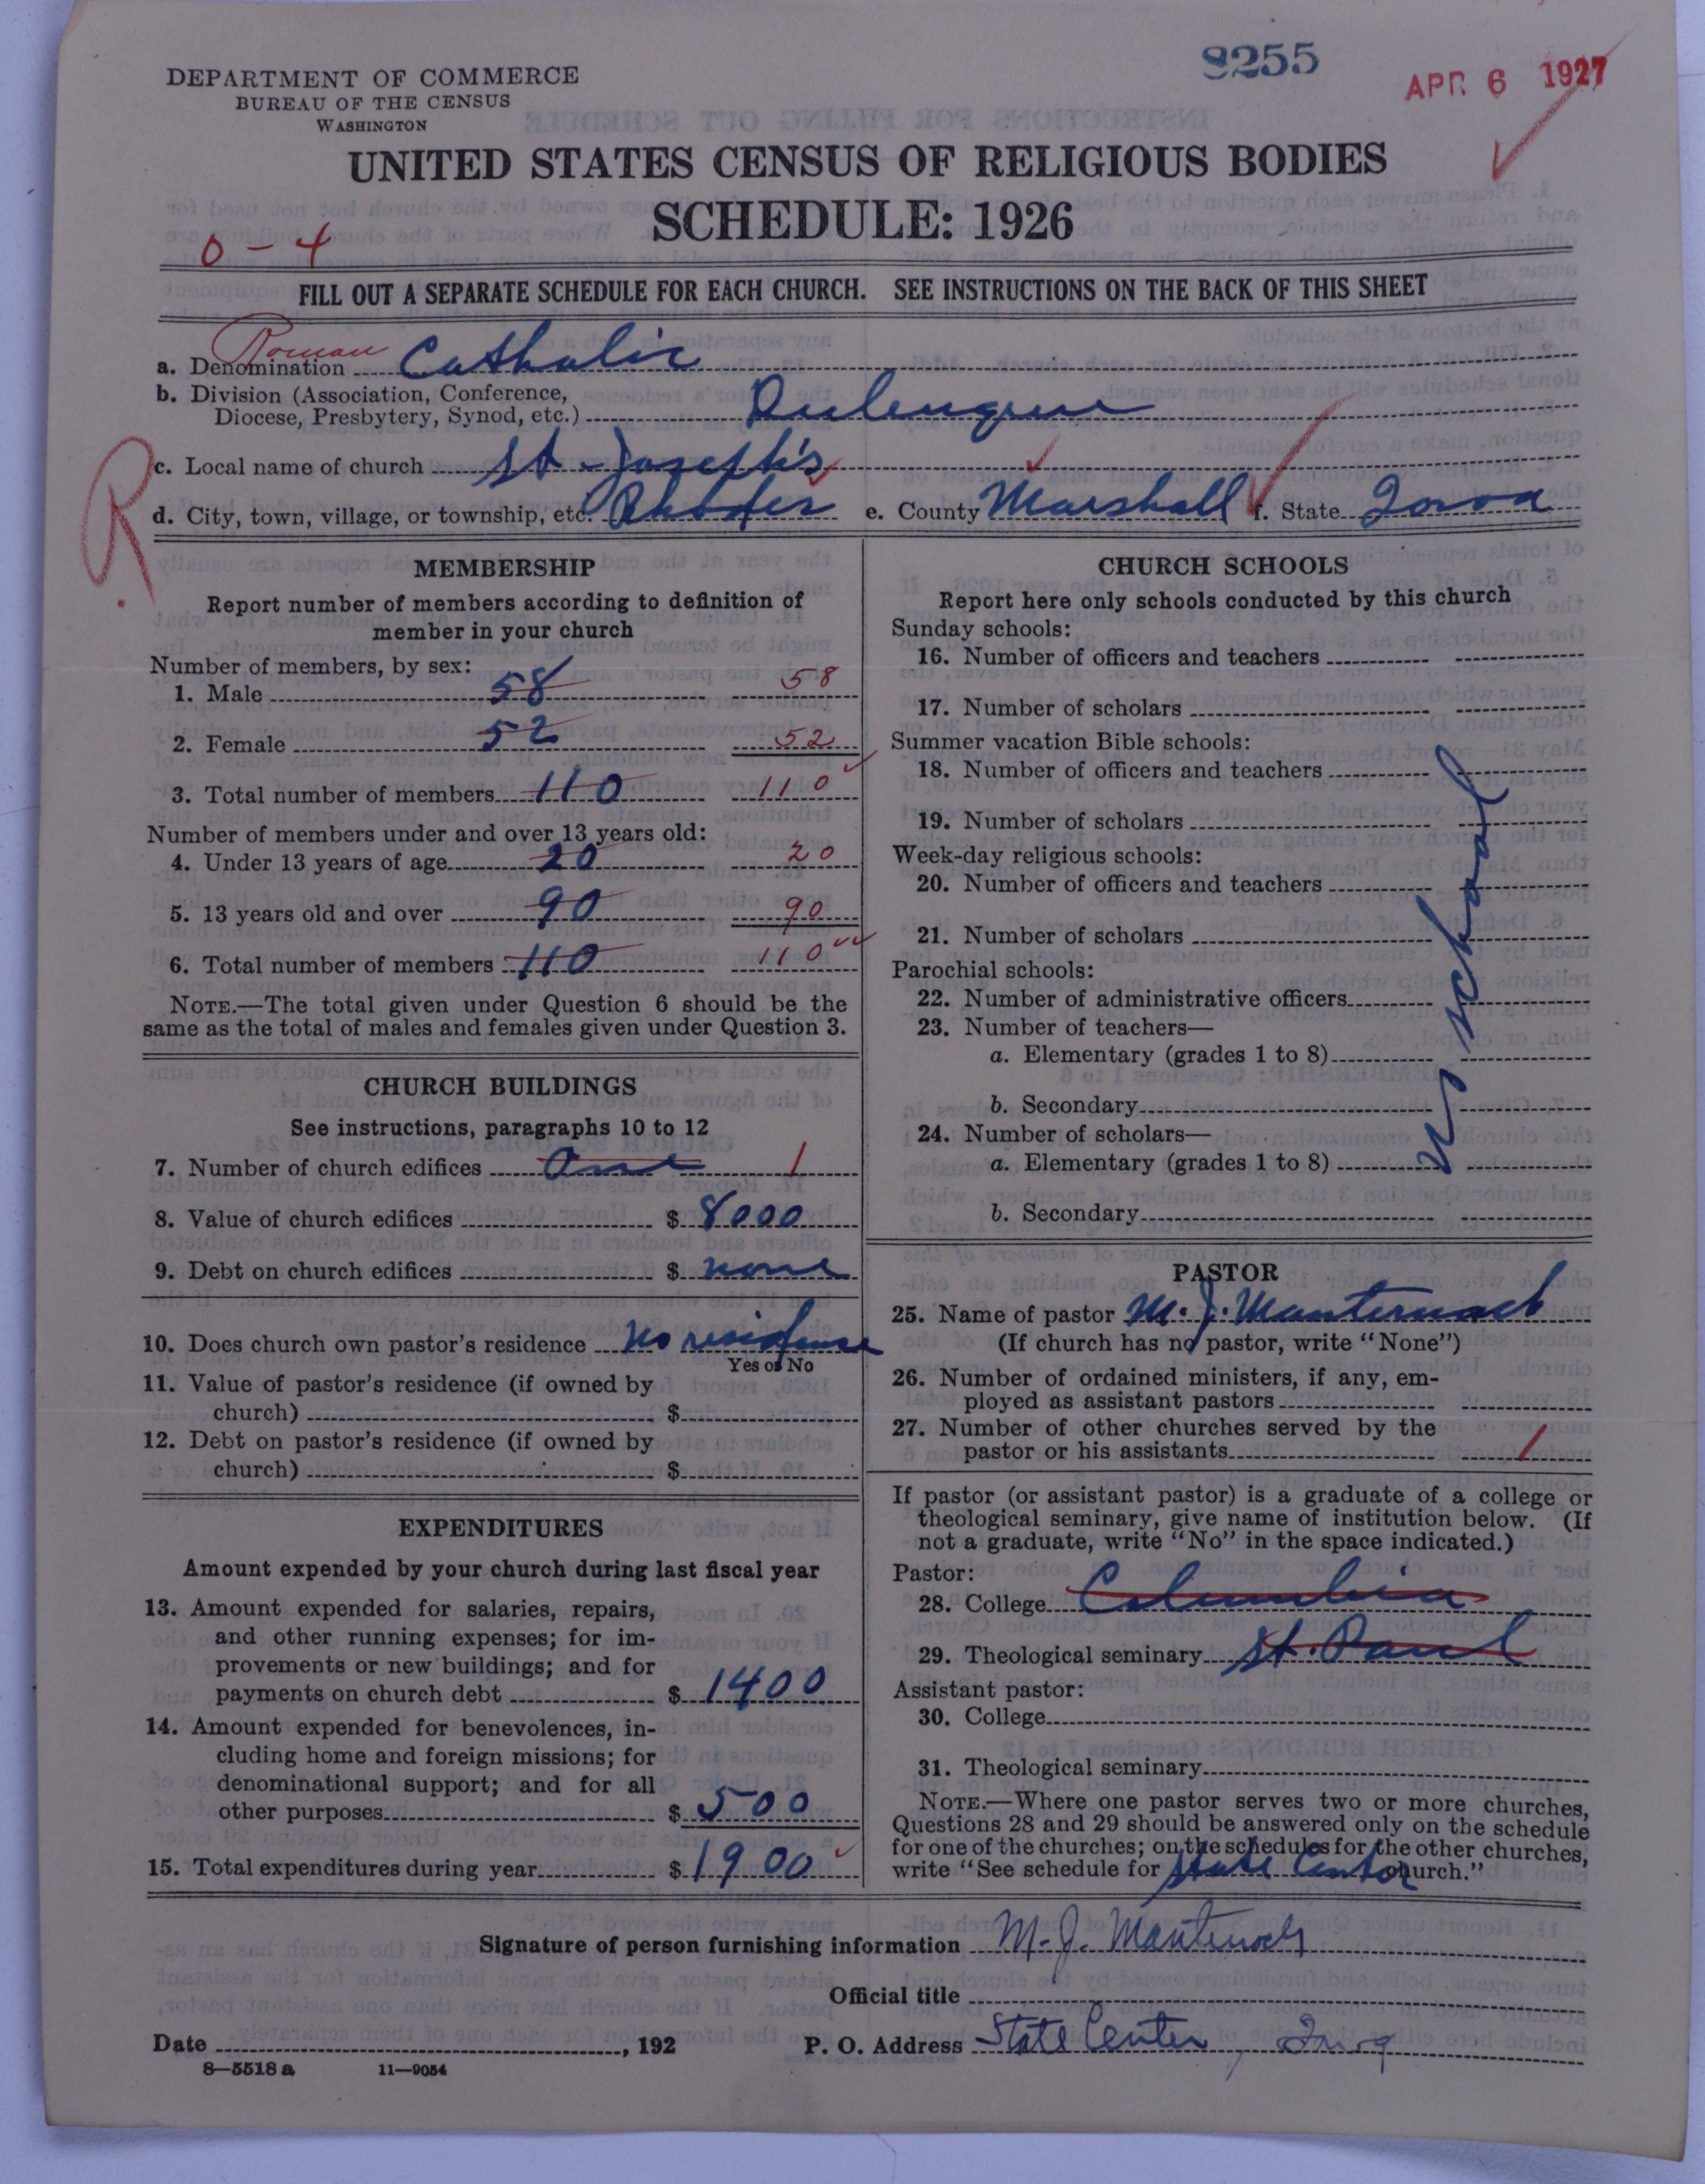 9255
APR 6 1927
DEPARTMENT OF COMMERCE
BUREAU OF THE CENSUS
WASHINGTON
UNITED STATES CENSUS OF RELIGIOUS BODIES
SCHEDULE: 1926
0 - 4
FILL OUT A SEPARATE SCHEDULE FOR EACH CHURCH. SEE INSTRUCTIONS ON THE BACK OF THIS SHEET
a. Denomination Roman Catholic
b. Division (Association, Conference,
Diocese, Presbytery, Synod, etc.) Dubuque
R.
c. Local name of church St Joseph's
d. City, town, village, or township, etc. Rhodes e. County Marshall f. State Iowa
MEMBERSHIP
Report number of members according to definition of
member in your church
Number of members, by sex:
1. Male 58 58
2. Female 52 52
3. Total number of members 110 110
Number of members under and over 13 years old:
4. Under 13 years of age 20 20
5. 13 years old and over 90 90
6. Total number of members 110 110
NOTE.—The total given under Question 6 should be the
same as the total of males and females given under Question 3.
CHURCH BUILDINGS
See instructions, paragraphs 10 to 12
7. Number of church edifices One 1
8. Value of church edifices $ 8000
9. Debt on church edifices $ none
10. Does church own pastor's residence No residence
Yes or No
11. Value of pastor's residence (if owned by
church) $
12. Debt on pastor's residence (if owned by
church) $
EXPENDITURES
Amount expended by your church during last fiscal year
13. Amount expended for salaries, repairs,
and other running expenses; for im-
provements or new buildings; and for
payments on church debt $ 1400
14. Amount expended for benevolences, in-
cluding home and foreign missions; for
denominational support; and for all
other purposes $ 500
15. Total expenditures during year $ 1900
CHURCH SCHOOLS
Report here only schools conducted by this church
Sunday schools:
16. Number of officers and teachers
17. Number of scholars
Summer vacation Bible schools:
18. Number of officers and teachers
19. Number of scholars
Week-day religious schools:
20. Number of officers and teachers
21. Number of scholars
Parochial schools:
22. Number of administrative officers
23. Number of teachers—
a. Elementary (grades 1 to 8)
b. Secondary
24. Number of scholars—
a. Elementary (grades 1 to 8)
b. Secondary
No school
PASTOR
25. Name of pastor M. J. Manternach
(If church has no pastor, write "None")
26. Number of ordained ministers, if any, em-
ployed as assistant pastors
27. Number of other churches served by the
pastor or his assistants 1
If pastor (or assistant pastor) is a graduate of a college or
theological seminary, give name of institution below. (If
not a graduate, write "No" in the space indicated.)
Pastor:
28. College Columbia
29. Theological seminary St. Paul
Assistant pastor:
30. College
31. Theological seminary
NOTE.—Where one pastor serves two or more churches,
Questions 28 and 29 should be answered only on the schedule
for one of the churches; on the schedules for the other churches,
write "See schedule for State Center church."
Signature of person furnishing information M. J. Manternach
Official title
Date , 192 P. O. Address State Center, Iowa
8—5518 a 11—9054